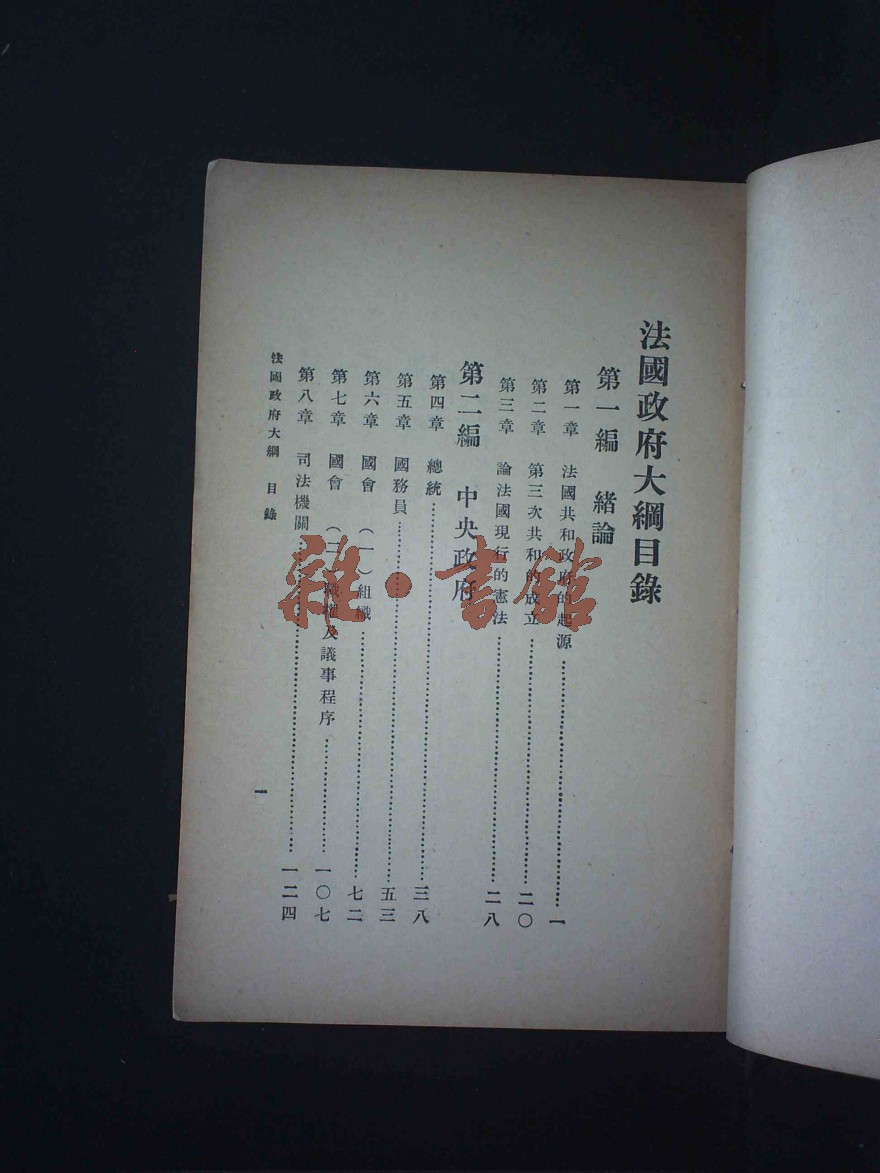 法國政府大綱目錄
第一編 緒論
第一章 法國共和政府的起源……一
第二章 第三次共和的成立……二〇
第三章 論法國現行的憲法……二八
第二編 中央政府
第四章 總統……三八
第五章 國務員……五三
第六章 國會（一）組織……七二
第七章 國會（二）職權及議事程序……一〇七
第八章 司法機關……一二四
法國政府大綱 目錄
一
雜·書館